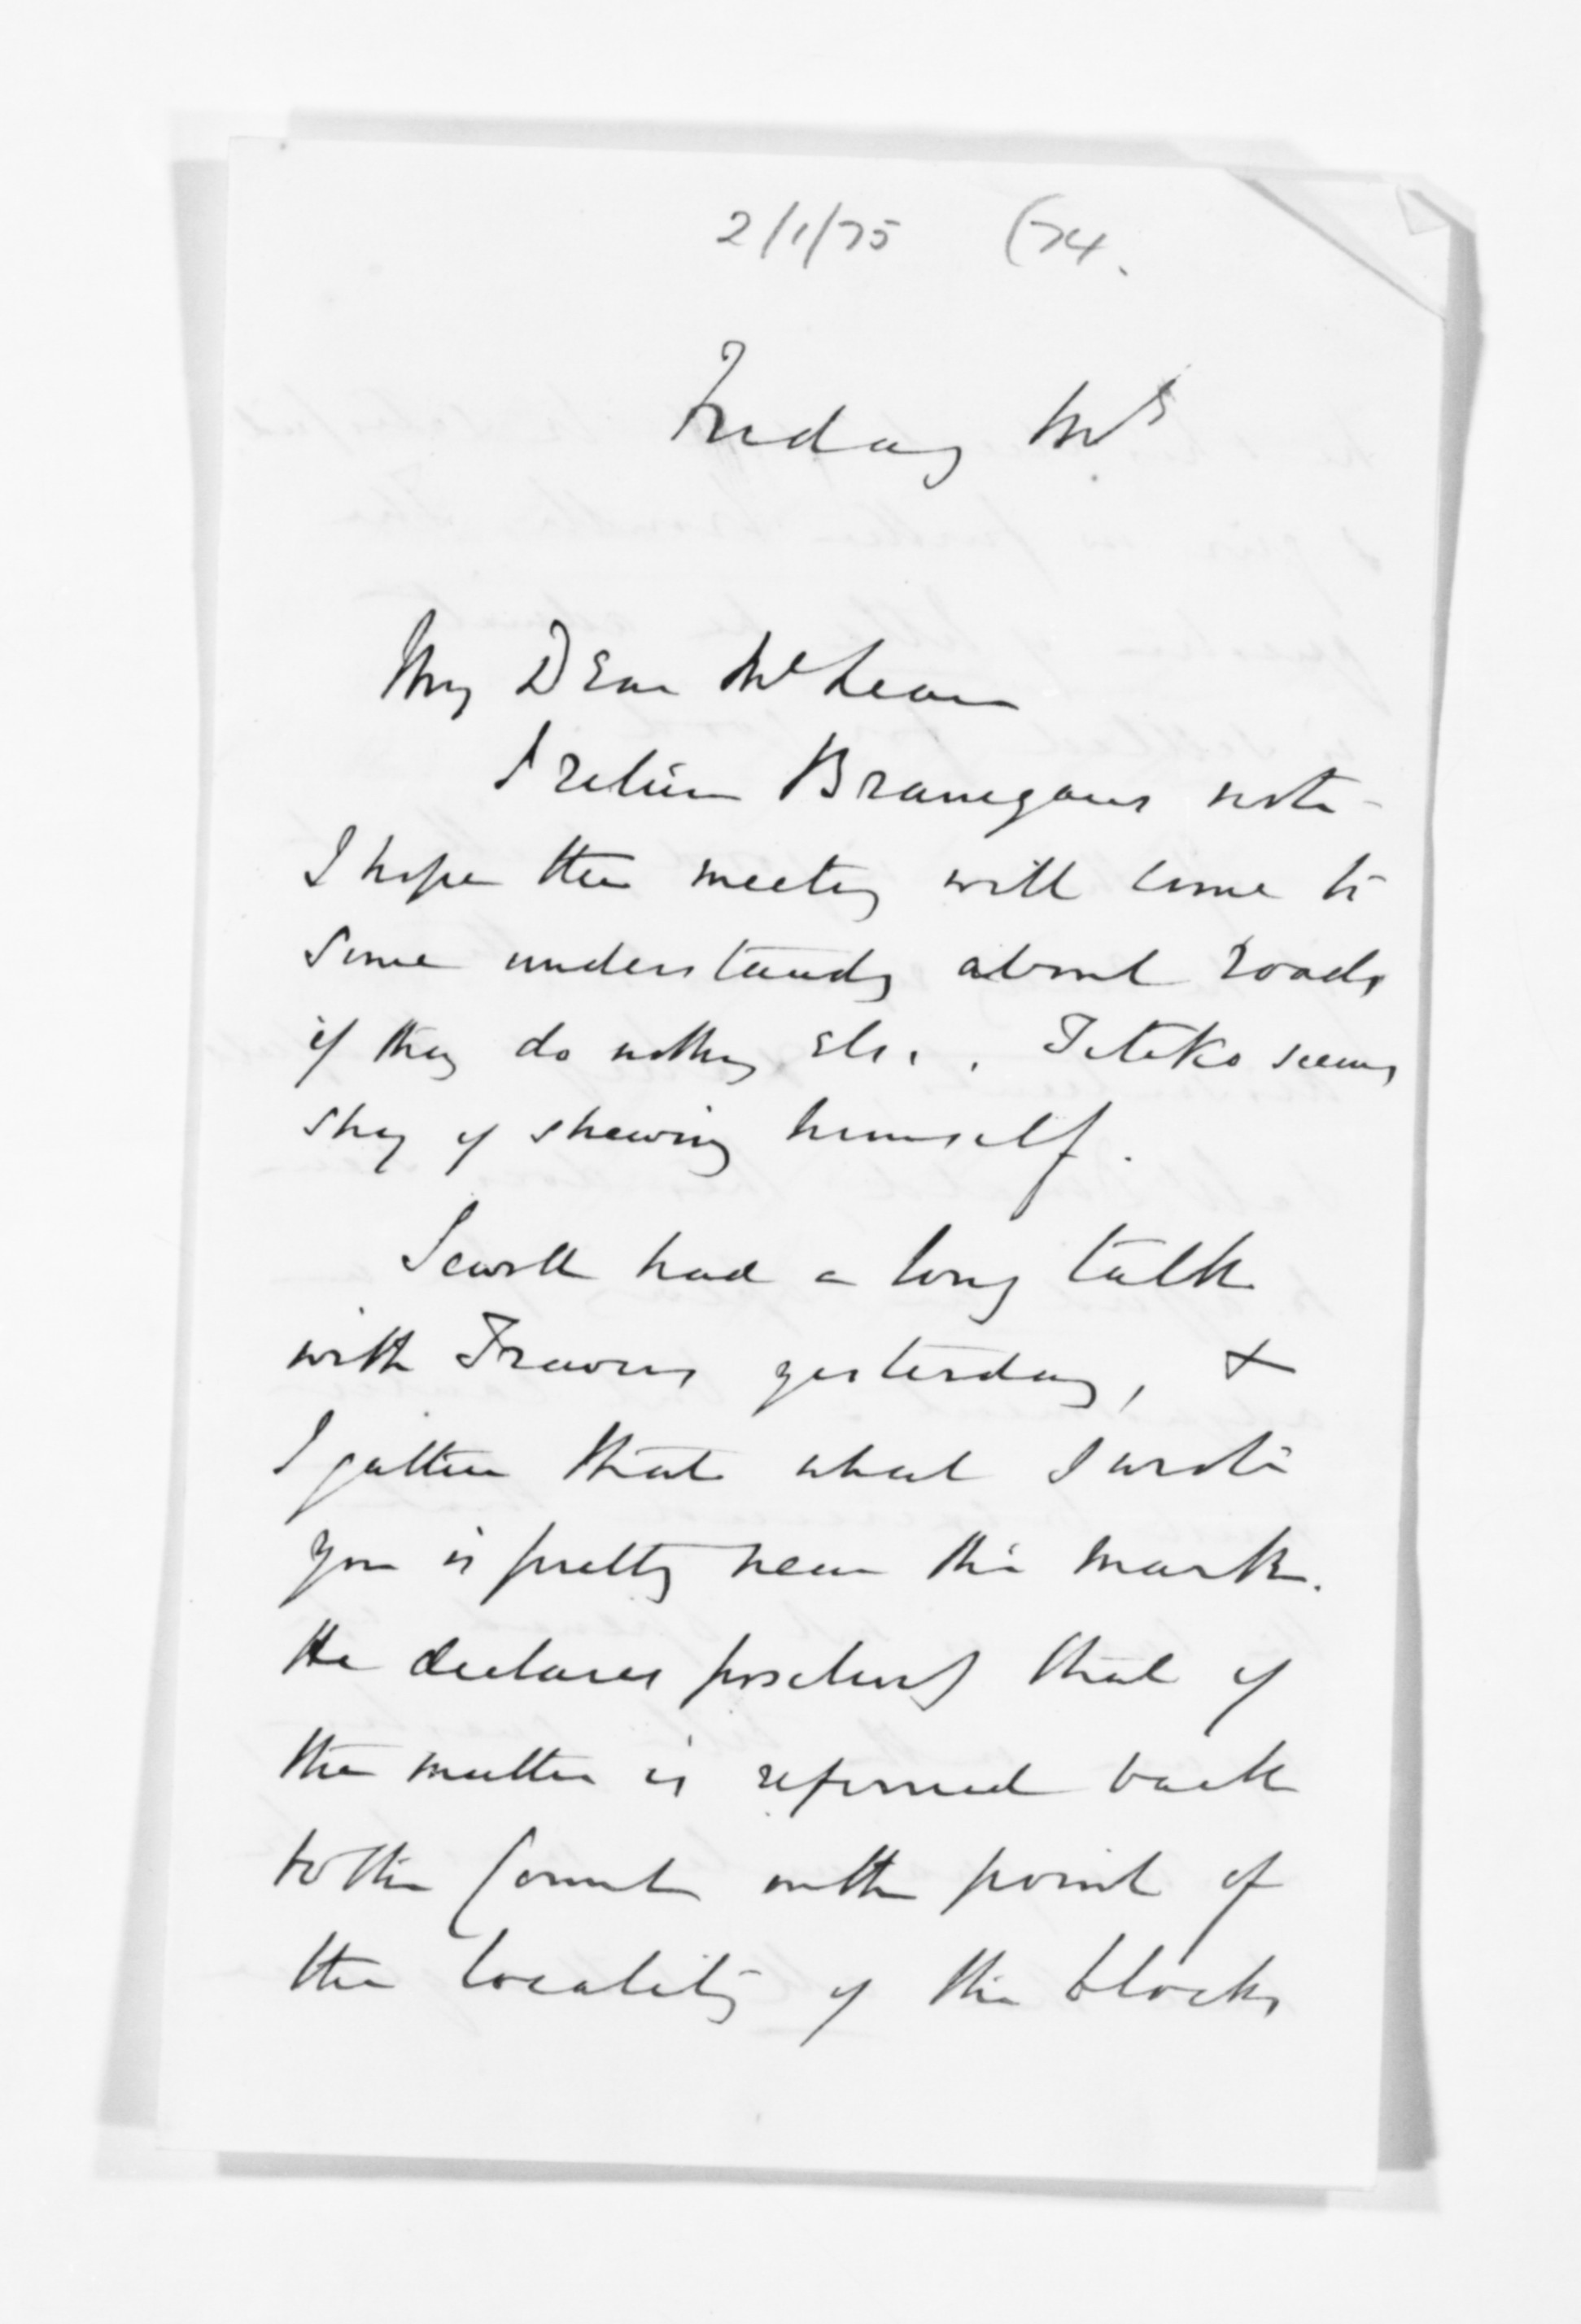 2/1/75 (74.
Friday
My Dear McLean
I return Branigans note -
I hope the meeting will come to
some understanding about roads
if they do nothing else. Titoko seems
shy of shewing himself.
Sewell had a long talk
with Travers yesterday, &
I gather that what I wrote
you is pretty near the mark.
He declares positively that if
the matter is referred back
to the Court on the point of
the locality of the blocks